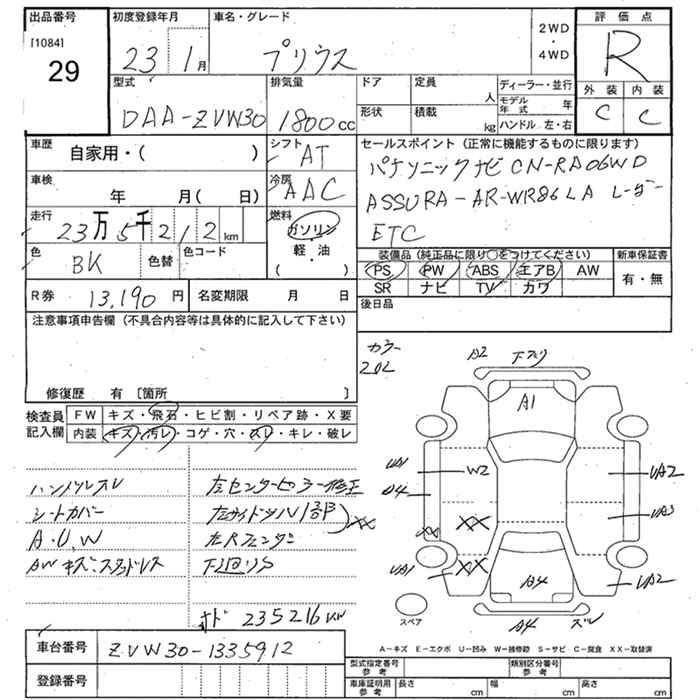 出品番号
[1084]
29
初度登録年月
23 1月
車名・グレード
プリウス
2WD
・
4WD
評価点
R
外装 内装
C C
型式
DAA-ZVW30
排気量
1800cc
ドア
形状
定員
人
積載
kg
ディーラー・並行
モデル年式 年
ハンドル 左・右
車歴
自家用・( )
シフト
AT
車検
年 月( 日)
冷房
AAC
走行
23万5千212km
燃料
ガソリン
軽・油
( )
色
BK
色替
色コード
R券 13,190円
名変期限 月 日
セールスポイント (正常に機能するものに限ります)
パナソニックナビ CN-RA06WD
ASSURA-AR-WR86LA レーダー
ETC
装備品(純正品に限り○をつけてください)
PS PW ABS エアB AW
SR ナビ TV カワ
新車保証書
有・無
後日品
注意事項申告欄(不具合内容等は具体的に記入して下さい)
修復歴 有〔箇所 〕
検査員記入欄
FW キズ・飛石・ヒビ割・リペア跡・X要
内装 キズ・汚レ・コゲ・穴・スレ・キレ・破レ
ハンドルスレ
シートカバー
A・U,W
AWキズ:スタッドレス
左センターピラー修正
左サイドシル1部
XX
左Rフェンダー
下廻りS
オド 235216km
カラー
202
A2
下スリ
A1
UA1
A4
W2
XX
XX
UA1
XX
A4
UA2
UA3
UA2
A4
ズレ
スペア
A-キズ E-エクボ U-凹み W-補修跡 S-サビ C-腐食 XX-取替済
車台番号
ZVW30-1335912
登録番号
型式指定番号参考
類別区分番号参考
車庫証明用参考
長さ cm
幅 cm
高さ cm